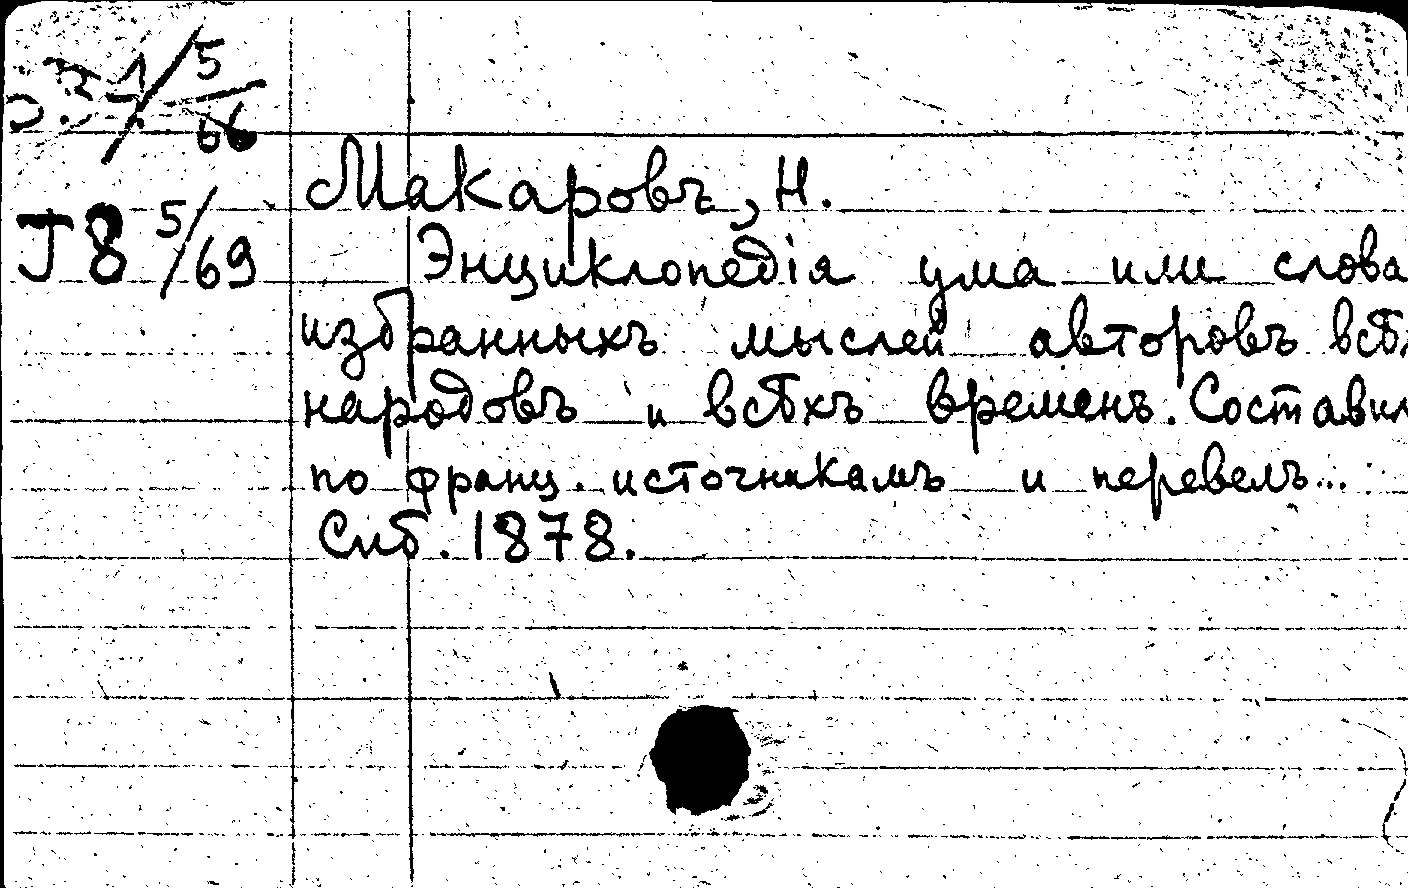 5/66
J8 5/69
Макаровъ, Н.
Энциклопедія ума или слова
избранныхъ мыслей авторовъ всѣ
народовъ и всѣхъ временъ. Составил
по франц. источникамъ и перевелъ...
Спб. 1878.